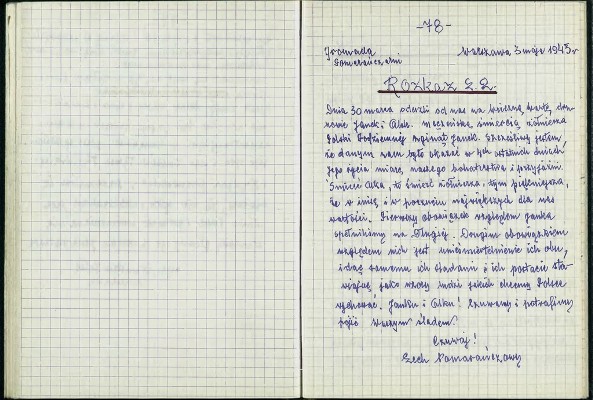 -78-
Gromada Warszawa 3 maja 1943 r
Pomarańczarni
Rozkaz L. 2.
Dnia 30 marca odeszli od nas na wieczną wartę dru-
howie Janek i Alek. Męczeńską śmiercią żołnierza
Polski Podziemnej zginął Janek. Szczęśliwy jestem
że danym nam było okazać w tych ostatnich dniach
Jego życia miarę naszego bohaterstwa i przyjaźni.
Śmierć Alka, to śmierć żołnierza, tym piękniejsza,
że w imię i w poczuciu największych dla nas
wartości. Pierwszy obowiązek względem Janka
spełniliśmy na Długiej. Drugim obowiązkiem
względem nich jest unieśmiertelnienie ich obu,
idąc samemu ich śladami i ich postacie sta-
wiając jako wzory ludzi jakich chcemy Polsce
wychować. Janku i Alku! Czuwamy i potrafimy
pójść Waszym śladem.
Czuwaj!
Zech Pomarańczowy